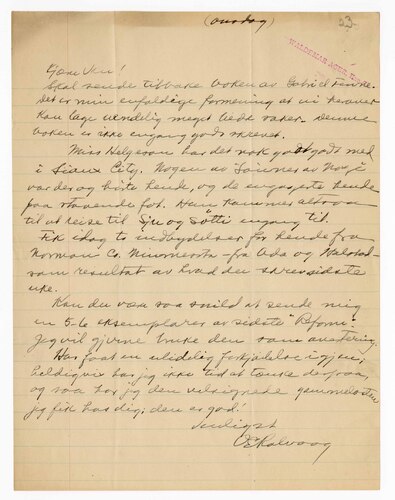 (onsdag)
23
WALDEMAR AGER,
Gode Ven!
Skal sende tilbake boken av Gabriel
Det er min enfoldige formening at vi
kan lage uendelig meget bedre saker. Denne
boken er ikke engang godt skrevet.
Miss Helgeson har det nok godt med
i Sioux City. Nogen av "Sønner av Norge"
var der og hørte hende, og de engagerte hende
paa staaende fot.
til at reise til Sju og Søtti engang til.
Fik idag to indbydelser for hende fra
Norman Co. Minnesota – fra Ada og Halstad –
som resultat av hvad den skrev sidste
uke.
Kan du være saa snild at sende mig
en 5-6 eksemplarer av sidste "Reform".
Jeg vil gjerne bruke den som
Har faat en ulidelig forkjølelse igjen;
heldigvis har jeg ikke tid at tænke derpaa,
og saa har jeg den velsignede gammelosten
jeg fik hos dig; den er god!
Venligst
OE Rølvaag